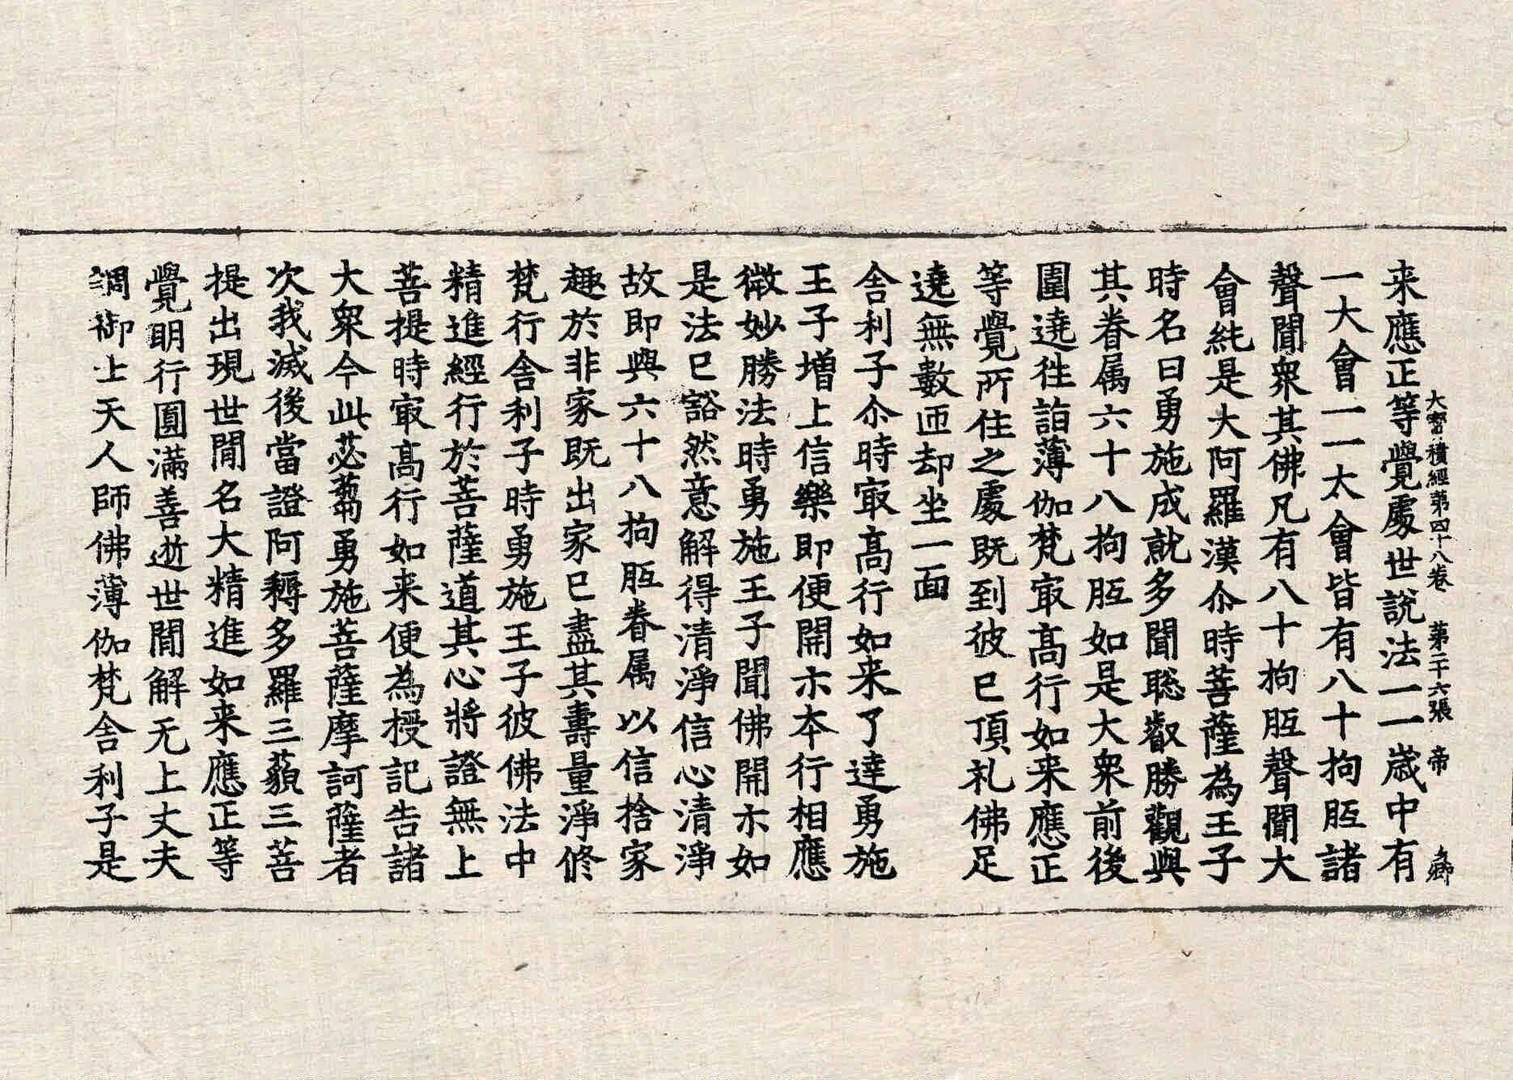 大寶積經第四十八卷 第二十六張 帝
来應正等覺處世說法一一歲中有
一大會一一太會皆有八十拘胝諸
聲聞衆其佛凡有八十拘胝聲聞大
會純是大阿羅漢尒時菩薩為王子
時名曰勇施成就多聞聡叡勝觀與
其眷属六十八拘胝如是大衆前後
圍遶徃詣薄伽梵㝡髙行如来應正
等覺所住之處既到彼已頂礼佛足
遶無數匝却坐一面
舎利子尒時㝡髙行如来了達勇施
王子増上信樂即便開示本行相應
微妙勝法時勇施王子聞佛開示如
是法已豁然意解得清淨信心清淨
故即與六十八拘胝眷属以信捨家
趣於非家既出家已盡其壽量淨修
梵行舎利子時勇施王子彼佛法中
精進經行於菩薩道其心將證無上
菩提時㝡髙行如来便為授記告諸
大衆今此苾蒭勇施菩薩摩訶薩者
次我滅後當證阿耨多羅三藐三菩
提出現世間名大精進如来應正等
覺明行圓滿善逝世間解无上丈夫
調御士天人師佛薄伽梵舎利子是